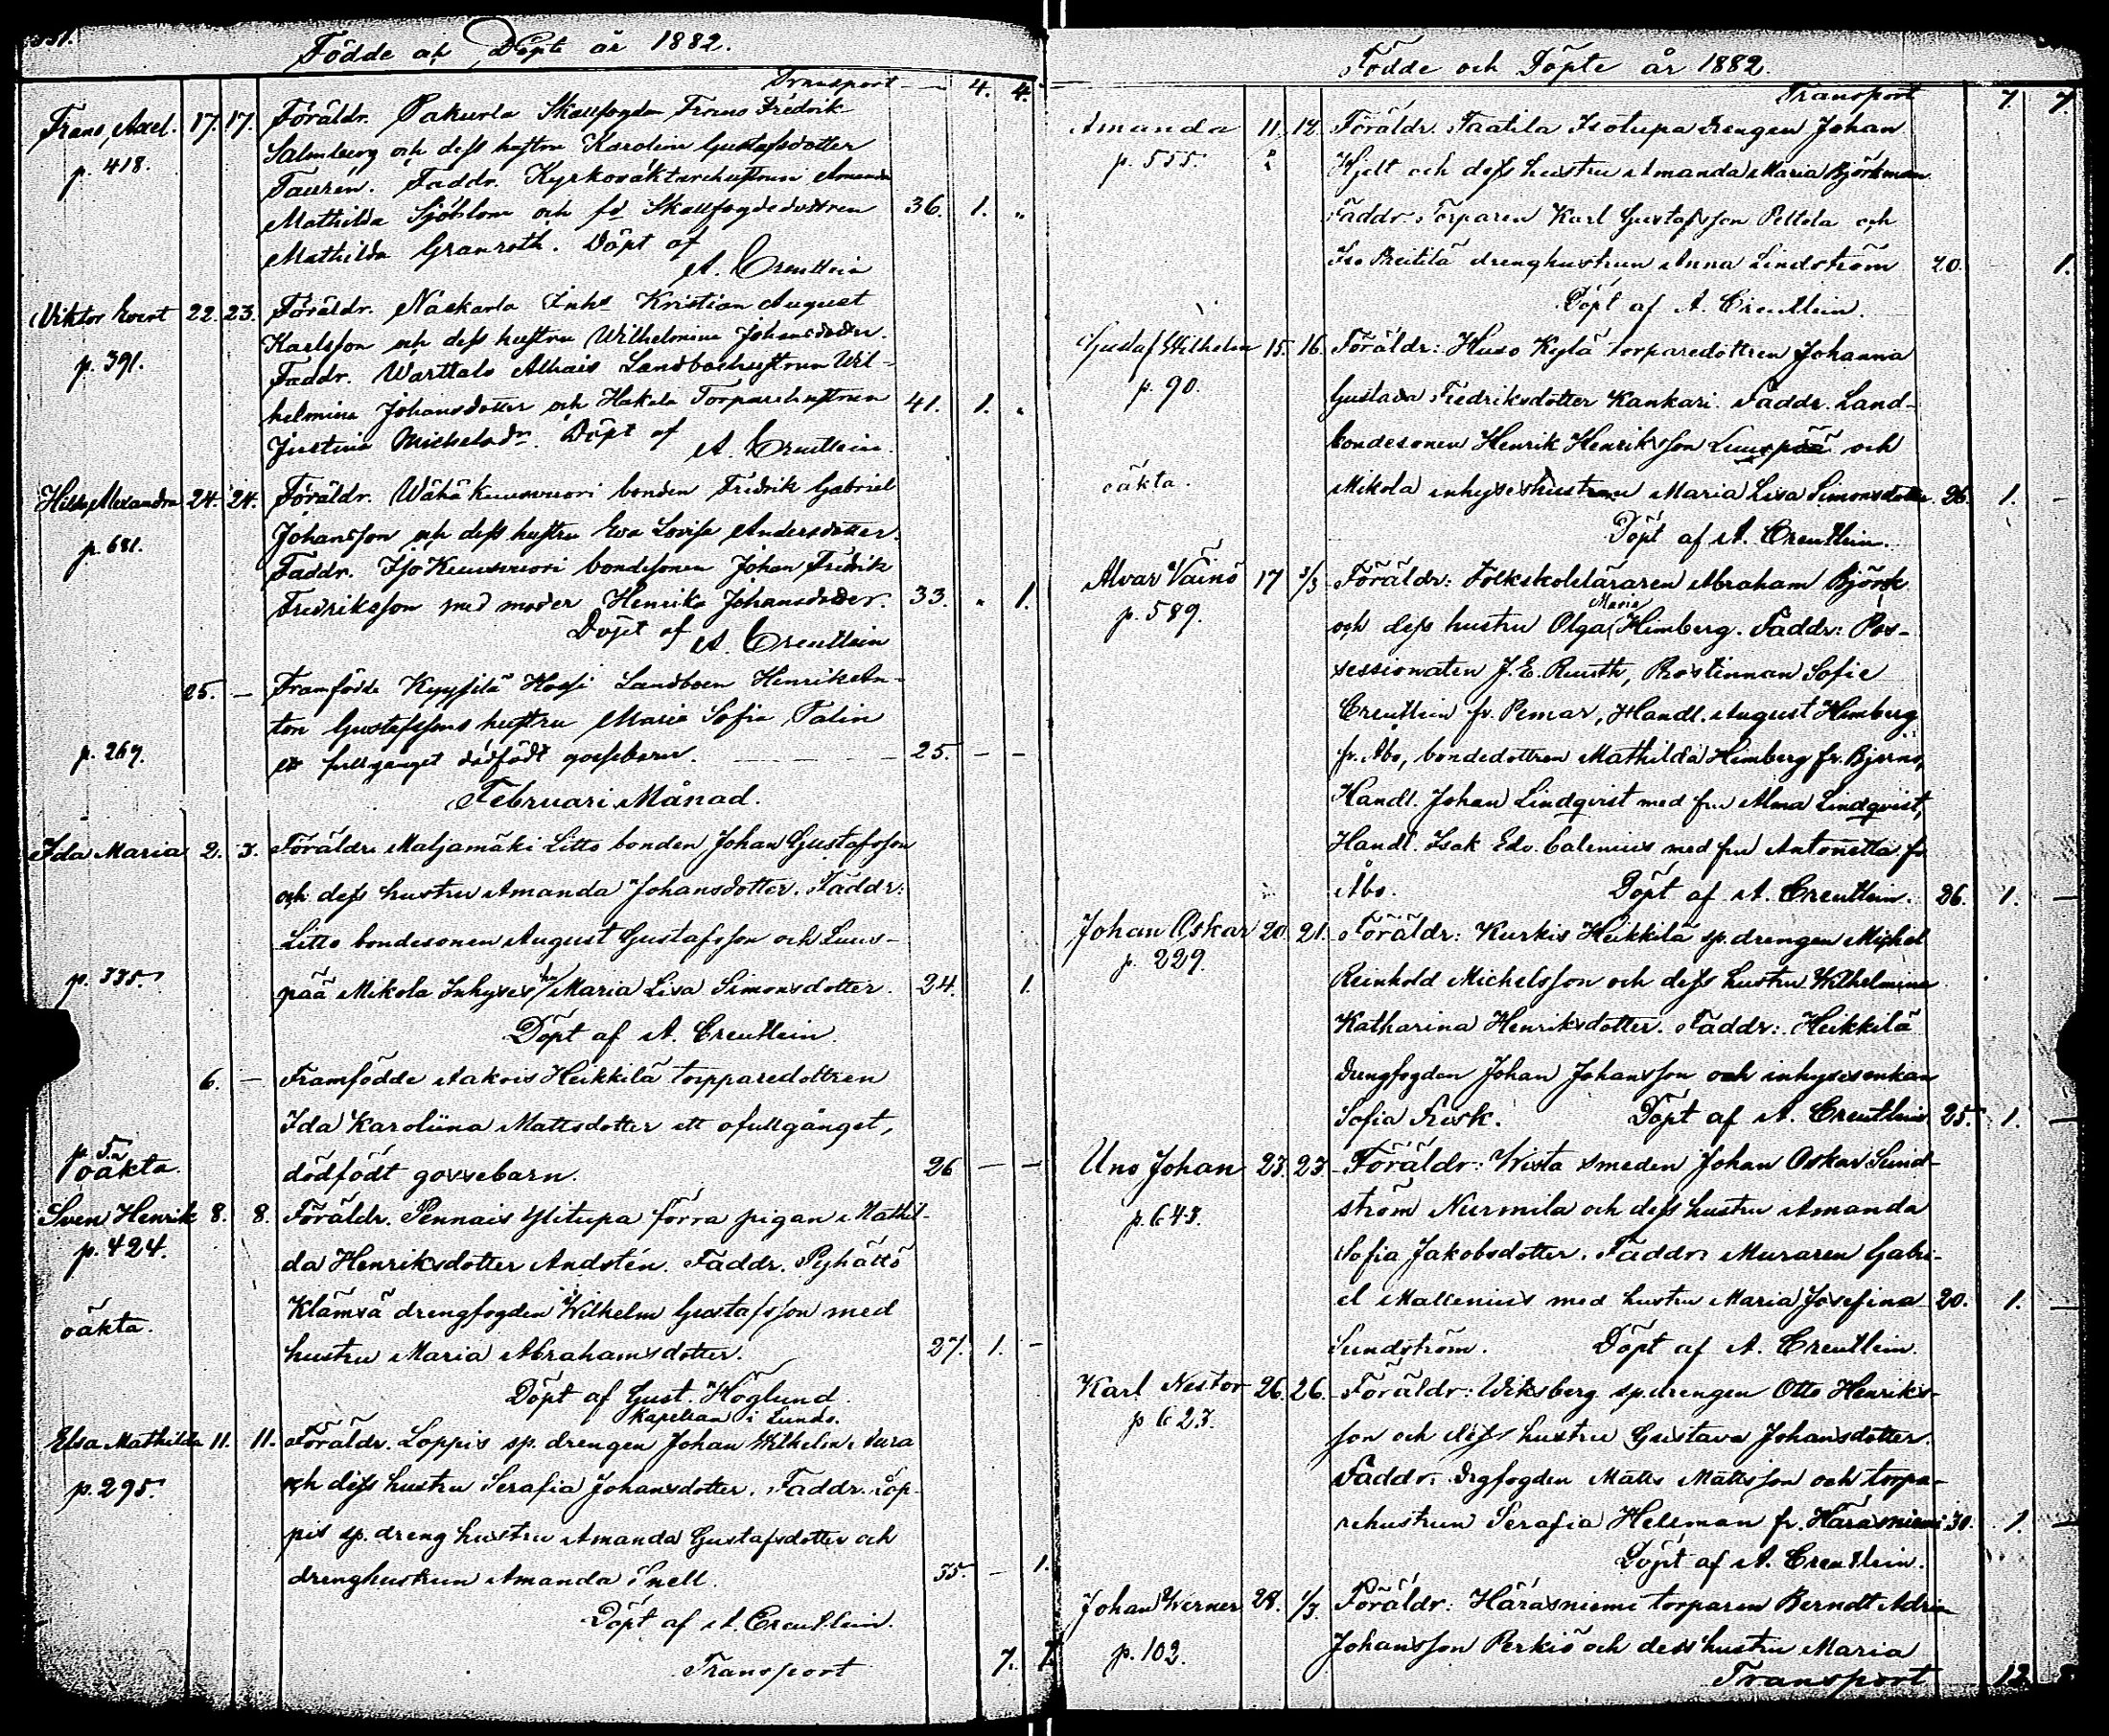 Födde och Döpte år 1882.
Transport — 4. 4.
Frans Axel. 17. 17. Föräldr. Pakurla Skallfogden Frans Fredrik
p. 418. Salmberg och dess hustru Karolina Gustafsdotter
Taurén. Faddr. Kyrkovaktarehustrun Amanda
Mathilda Sjöblom och fd Skallfogdedottren 36. 1. "
Mathilda Granroth. Döpt af
A. Creutlein
Viktor Evert 22. 23. Föräldr. Naskarla Inhs Kristian August
Karlsson och dess hustru Wilhelmina Johansdotter.
p. 391. Faddr. Warttala Alhais Landboehustrun Wil-
helmina Johansdotter och Hakala Torparehustrun 41. 1. "
Justina Michelsdr. Döpt af
A. Creutlein.
Hilda Alexandra 24. 24. Föräldr. Wähä Kuusvuori bonden Fredrik Gabriel
p. 681. Johansson och dess hustru Eva Lovisa Andersdotter.
Faddr. Iso Kuusvuori bondesonen Johan Fredrik
Fredriksson med moder Henrika Johansdotter. 33. " 1.
Döpt af
A. Creutlein
25. — Framfödde Kyysilä Hossi Landboen Henrik An-
ton Gustafssons hustru Maria Sofia Talin
p. 269. ett fullgånget dödfödt gossebarn. 25. — —
Februari Månad.
Ida Maria 2. 3. Föräldr. Maljamäki Litto bonden Johan Gustafsson
och dess hustru Amanda Johansdotter. Faddr:
Litto bondesonen August Gustafsson och Luus-
p. 335. pää Mikola Inhyses hu Maria Lisa Simonsdotter. 24. 1.
Döpt af A. Creutlein.
6. — Framfödde Aakois Heikkilä torpparedottren
Ida Karoliina Mattsdotter ett ofullgånget,
p. 5.
oäkta. dödfödt gossebarn. 26 — —
Sven Henrik 8. 8. Föräldr. Pennais Ylitupa förra pigan Mathil-
p. 424. da Henriksdotter Andstén. Faddr. Pyhältö
Klämsä drengfogden Wilhelm Gustafsson med
oäkta. hustru Maria Abrahamsdotter. 27. 1. —
Döpt af Gust. Höglund.
Kapellan i Lundo.
Elsa Mathilda 11. 11. Föräldr. Loppis sp. drengen Johan Wilhelm Aura
p. 295. och dess hustru Serafia Johansdotter. Faddr. Lop-
pis sp. dreng hustru Amanda Gustafsdotter och
drenghustrun Amanda Snell. 35. — 1.
Döpt af A. Creutlein.
Transport 7. 7.
Födde och Döpte år 1882.
Transport 7. 7.
Amanda 11. 12. Föräldr. Taatila Isotupa drengen Johan
p. 555. Hjelt och dess hustru Amanda Maria Björkman.
Faddr. Torparen Karl Gustafsson Peltola och
Iso Preitilä drenghustrun Anna Lindström 20. 1.
Döpt af A. Creutlein.
Gustaf Wilhelm 15. 16. Föräldr: Huso Kylä torparedottren Johanna
p. 90. Gustava Fredriksdotter Kankari. Faddr. Land-
bondesonen Henrik Henriksson Luuspää och
oäkta. Mikola inhyseshustrun Maria Lisa Simonsdotter. 26. 1. —
Döpt af A. Creutlein.
Alvar Väinö 17 3/3 Föräldr: Folkskoleläraren Abraham Björk
p. 589. och dess hustru Olga Maria Himberg. Faddr: Pos-
sessionaten J. E. Ruuth, Prostinnan Sofie
Creutlein fr. Pemar, Handl. August Himberg
fr. Åbo, bondedottren Mathilda Himberg fr. Bjerno,
Handl. Johan Lindqvist med fru Alma Lindqvist,
Handl. Isak Edv. Calenius med fru Antonetta fr.
Åbo. Döpt af A. Creutlein. 26. 1. —
Johan Oskar 20. 21. Föräldr: Kurkis Heikkilä sp. drengen Michel
p. 229. Reinhold Michelsson och dess hustru Wilhelmina
Katharina Henriksdotter. Faddr: Heikkilä
drengfogden Johan Johansson och inhysesenkan
Sofia Frisk. Döpt af A. Creutlein. 25. 1. —
Uno Johan 23. 23. Föräldr: Wista smeden Johan Oskar Sund-
p. 643. ström Nurmila och dess hustru Amanda
Sofia Jakobsdotter. Faddr. Muraren Gabri-
el Mallenius med hustru Maria Josefina 20. 1. —
Sundström. Döpt af A. Creutlein.
Karl Nestor 26. 26. Föräldr: Wiksberg sp. drengen Otto Henriks-
p. 623. son och dess hustru Gustava Johansdotter.
Faddr. drgfogden Matts Mattsson och torpa-
rehustrun Serafia Hellman fr. Häräsniemi. 30. 1. —
Döpt af A. Creutlein.
Johan Werner 28. 1/3. Föräldr: Häräsniemi torparen Berndt Adrian
p. 102. Johansson Perkiö och dess hustru Maria
Transport 12